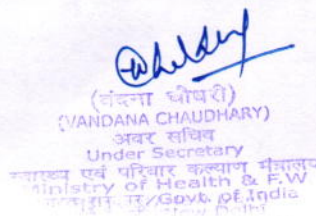 (वंदना चौधरी)
(VANDANA CHAUDHARY)
अवर सचिव
Under Secretary
स्वास्थ्य एवं परिवार कल्याण मंत्रालय
Ministry of Health & F.W
/Govt. of India
New Delhi